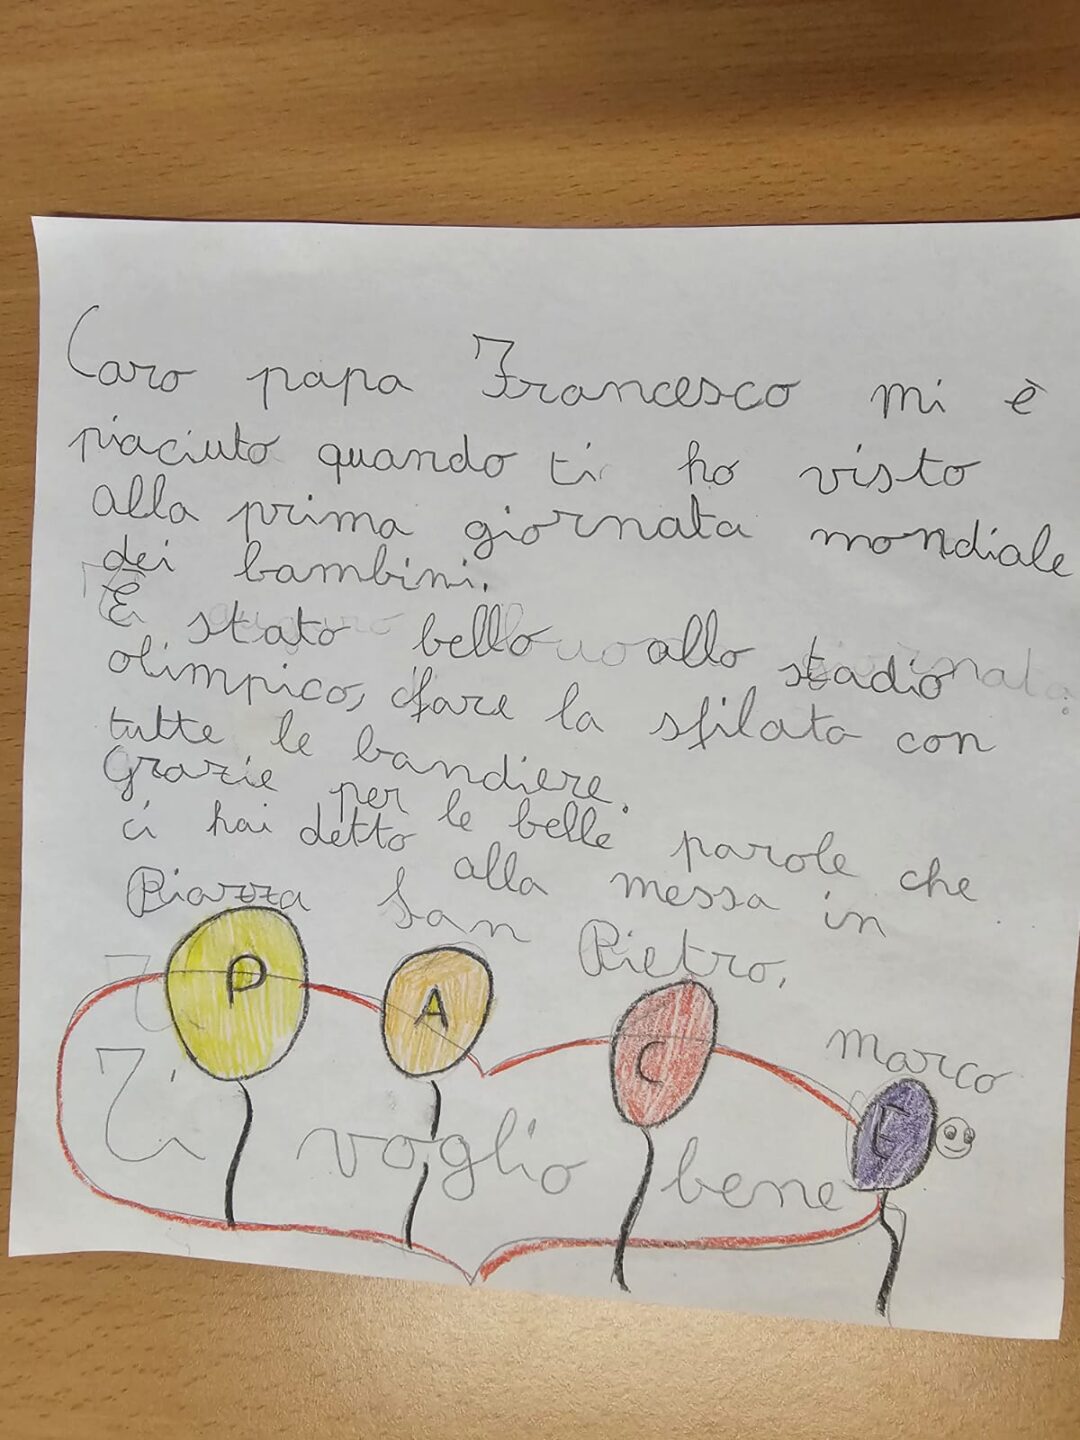 Caro papa Francesco mi è
piaciuto quando ti ho visto
alla prima giornata mondiale
dei bambini.
È stato bello allo stadio
olimpico, fare la sfilata con
tutte le bandiere.
Grazie per le belle parole che
ci hai detto alla messa in
Piazza San Pietro.
P A C E
Marco
Ti voglio bene